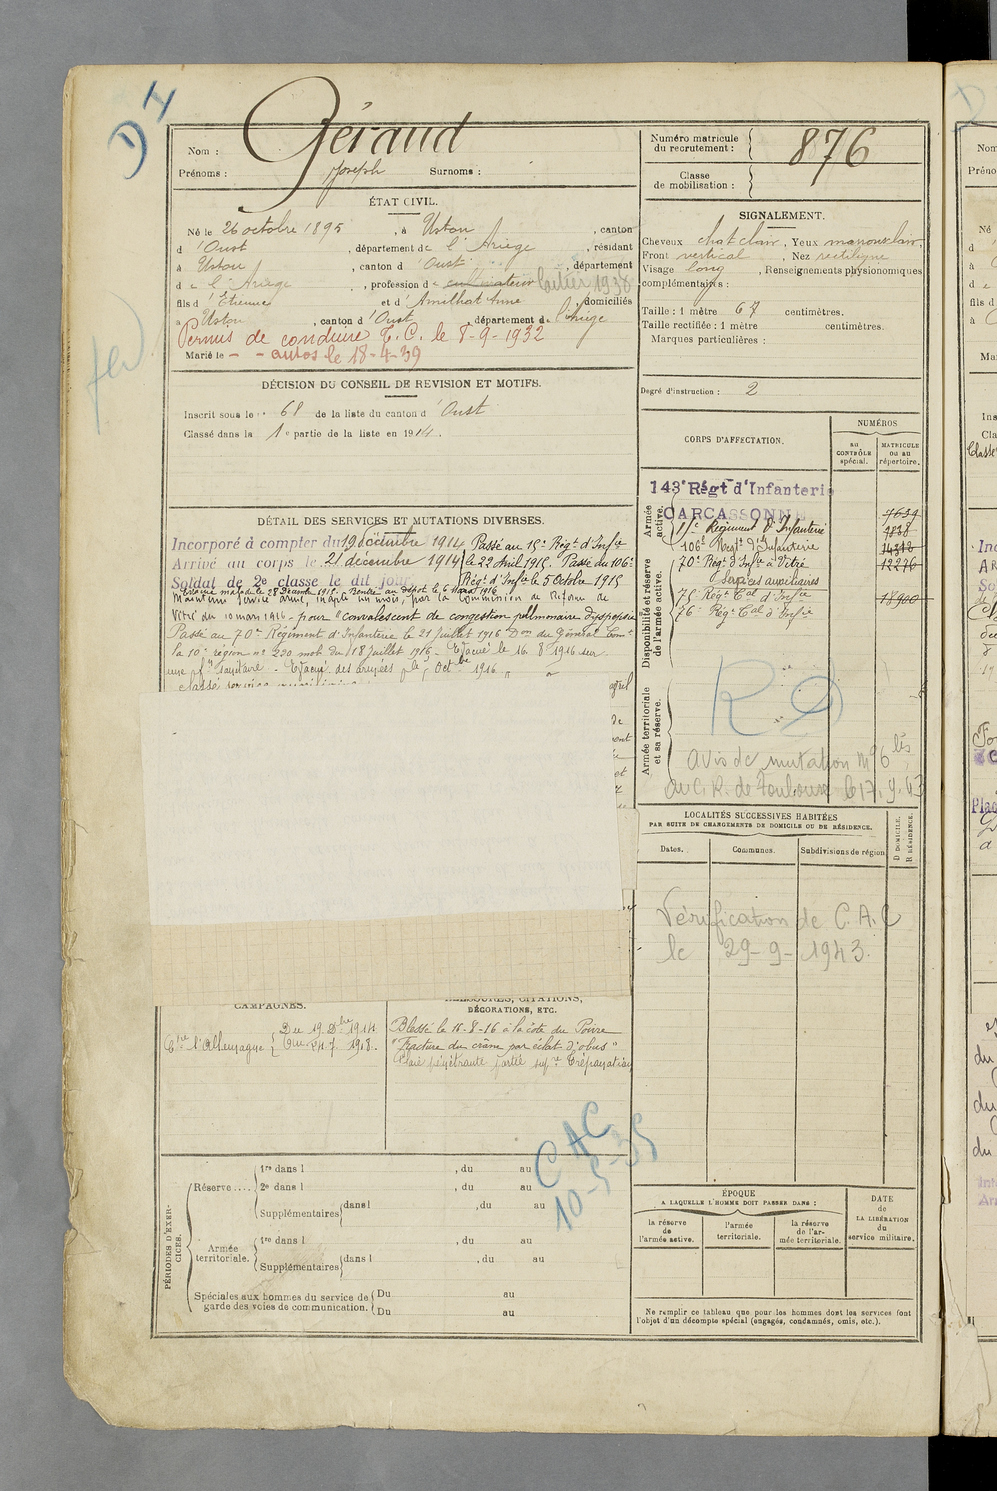 D4
Nom : Géraud
Prénoms : Joseph Surnoms :
Numéro matricule du recrutement : 876
Classe de mobilisation :
ÉTAT CIVIL.
Né le 26 octobre 1895, à Ustou, canton
d'Oust, département de l'Ariège, résidant
à Ustou, canton d'Oust, département
de l'Ariège, profession de cultivateur laitier 1938
fils d'Etienne et d'Amilhat Anne domiciliés
à Ustou, canton d'Oust, département de l'Ariège
Permis de conduire T.C. le 8-9-1932
Marié le - - autos le 18-4-39
SIGNALEMENT.
Cheveux chat clair, Yeux marrons clair,
Front vertical, Nez rectiligne
Visage long, Renseignements physionomiques
complémentaires :
Taille : 1 mètre 67 centimètres.
Taille rectifiée : 1 mètre centimètres.
Marques particulières :
Degré d'instruction : 2
DÉCISION DU CONSEIL DE REVISION ET MOTIFS.
Inscrit sous le n° 68 de la liste du canton d'Oust
Classé dans la 1e partie de la liste en 1914.
CORPS D'AFFECTATION.
NUMÉROS
au CONTRÔLE spécial.
MATRICULE ou au répertoire.
Armée active.
143e Régt d'Infanterie
CARCASSONNE
15e Régiment d'Infanterie
106e Regt d'Infanterie
70e Régt d'Infie à Vitré
Services auxiliaires
75e Régt Cal d'Infie
76e Régt Cal d'Infie
12276
18900
Disponibilité et réserve de l'armée active.
Armée territoriale et sa réserve.
avis de mutation n° 6 bis
au C.R. de Toulouse le 17.9.43
DÉTAIL DES SERVICES ET MUTATIONS DIVERSES.
Incorporé à compter du 19 décembre 1914 Passé au 15e Régt d'Infie
Arrivé au corps le 21 décembre 1914 le 22 Avril 1915. Passé du 106e
Soldat de 2e classe le dit jour Régt d'Infie le 5 Octobre 1915
Evacué malade le 28 Décembre 1915. Rentré au dépôt le 6 Mars 1916
Maintenu service armé, inapte un mois, par la Commission de Réforme de
Vitré du 10 mars 1916 - pour "convalescent de congestion pulmonaire, dyspepsie
Passé au 70e Régiment d'Infanterie le 21 juillet 1916 Don du Général Comt
la 10e région n° 220 mob. du 18 juillet 1916 - Evacué le 16. 8 1916 sur
LOCALITÉS SUCCESSIVES HABITÉES
PAR SUITE DE CHANGEMENTS DE DOMICILE OU DE RÉSIDENCE.
Dates. Communes. Subdivisions de région
D DOMICILE. R RÉSIDENCE.
Vérification de C.A.C
le 29-9-1943.
CAMPAGNES.
Ctre l'Allemagne { Du 19 Dbre 1914
DÉCORATIONS, ETC.
Blessé le 16-8-16 à la côte du Poivre
"Fracture du crâne par éclat d'obus"
CAC
10-5-39
PÉRIODES D'EXERCICES.
Réserve.... 1re dans l , du au
2e dans l , du au
Supplémentaires dans l , du au
Armée territoriale. 1re dans l , du au
Supplémentaires dans l , du au
Spéciales aux hommes du service de garde des voies de communication. Du au
Du au
ÉPOQUE
A LAQUELLE L'HOMME DOIT PASSER DANS :
la réserve de l'armée active.
l'armée territoriale.
la réserve de l'armée territoriale.
DATE de LA LIBÉRATION du service militaire.
Ne remplir ce tableau que pour les hommes dont les services font
l'objet d'un décompte spécial (engagés, condamnés, omis, etc.).